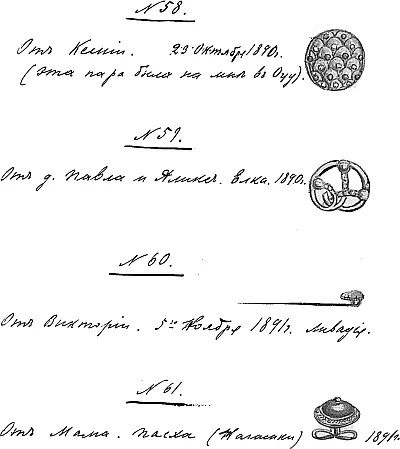 N 58.
Отъ Ксеніи. 23 Октября 1890 г.
(эта пара была на мнѣ въ Оцу).
N 59.
Отъ д. Павла и Аликс. Елка. 1890 г.
N 60.
Отъ Викторіи. 5го Ноября 1891 г. Ливадія.
N 61.
Отъ Мама. Пасха (Нагасаки) 1891 г.